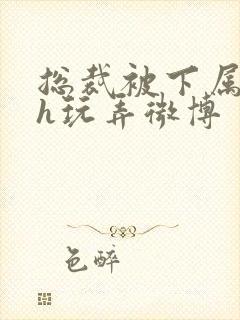 总裁被下属
h玩弄微博
色醉